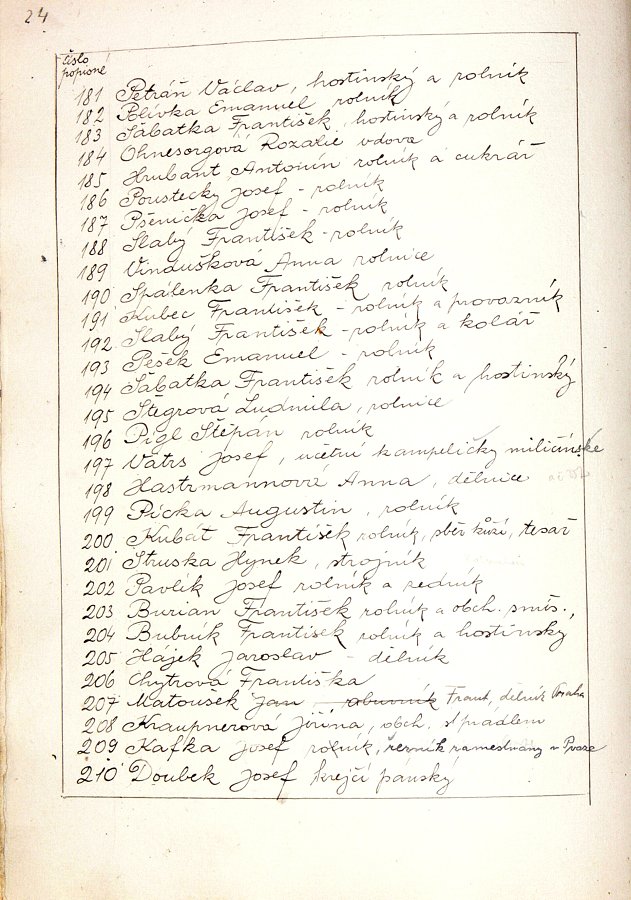 24
číslo
popisné
181 Petráň Václav, hostinský a rolník
182 Polívka Emanuel rolník
183 Sábatka František, hostinský a rolník
184 Ohnesorgová Rozalie vdova
185 Hrubant Antonín rolník a cukrář
186 Poustecký Josef - rolník
187 Pšenička Josef - rolník
188 Slabý František - rolník
189 Vindušková Anna rolnice
190 Spálenka František rolník
191 Kubec František - rolník a provazník
192 Slabý František - rolník a kolář
193 Pešek Emanuel - rolník
194 Sábatka František rolník a hostinský
195 Štěgrová Ludmila, rolnice
196 Pigl Štěpán rolník
197 Vatrs Josef, účetní kampeličky miličínské
198 Hastrmannová Anna, dělnice
199 Picka Augustin, rolník
200 Kubát František rolník, sběr kůží, tesař
201 Struska Hynek, strojník
202 Pavlík Josef rolník a zedník
203 Burian František rolník a obch. smíš.
204 Bubník František rolník a hostinský
205 Hájek Jaroslav - dělník
206 Chytrová Františka
207 Matoušek Jan obuvník Frant. dělník Praha
208 Kraupnerová Jiřina, obch. s prádlem
209 Kafka Josef rolník, řezník zaměstnaný v Praze
210 Doubek Josef krejčí pánský